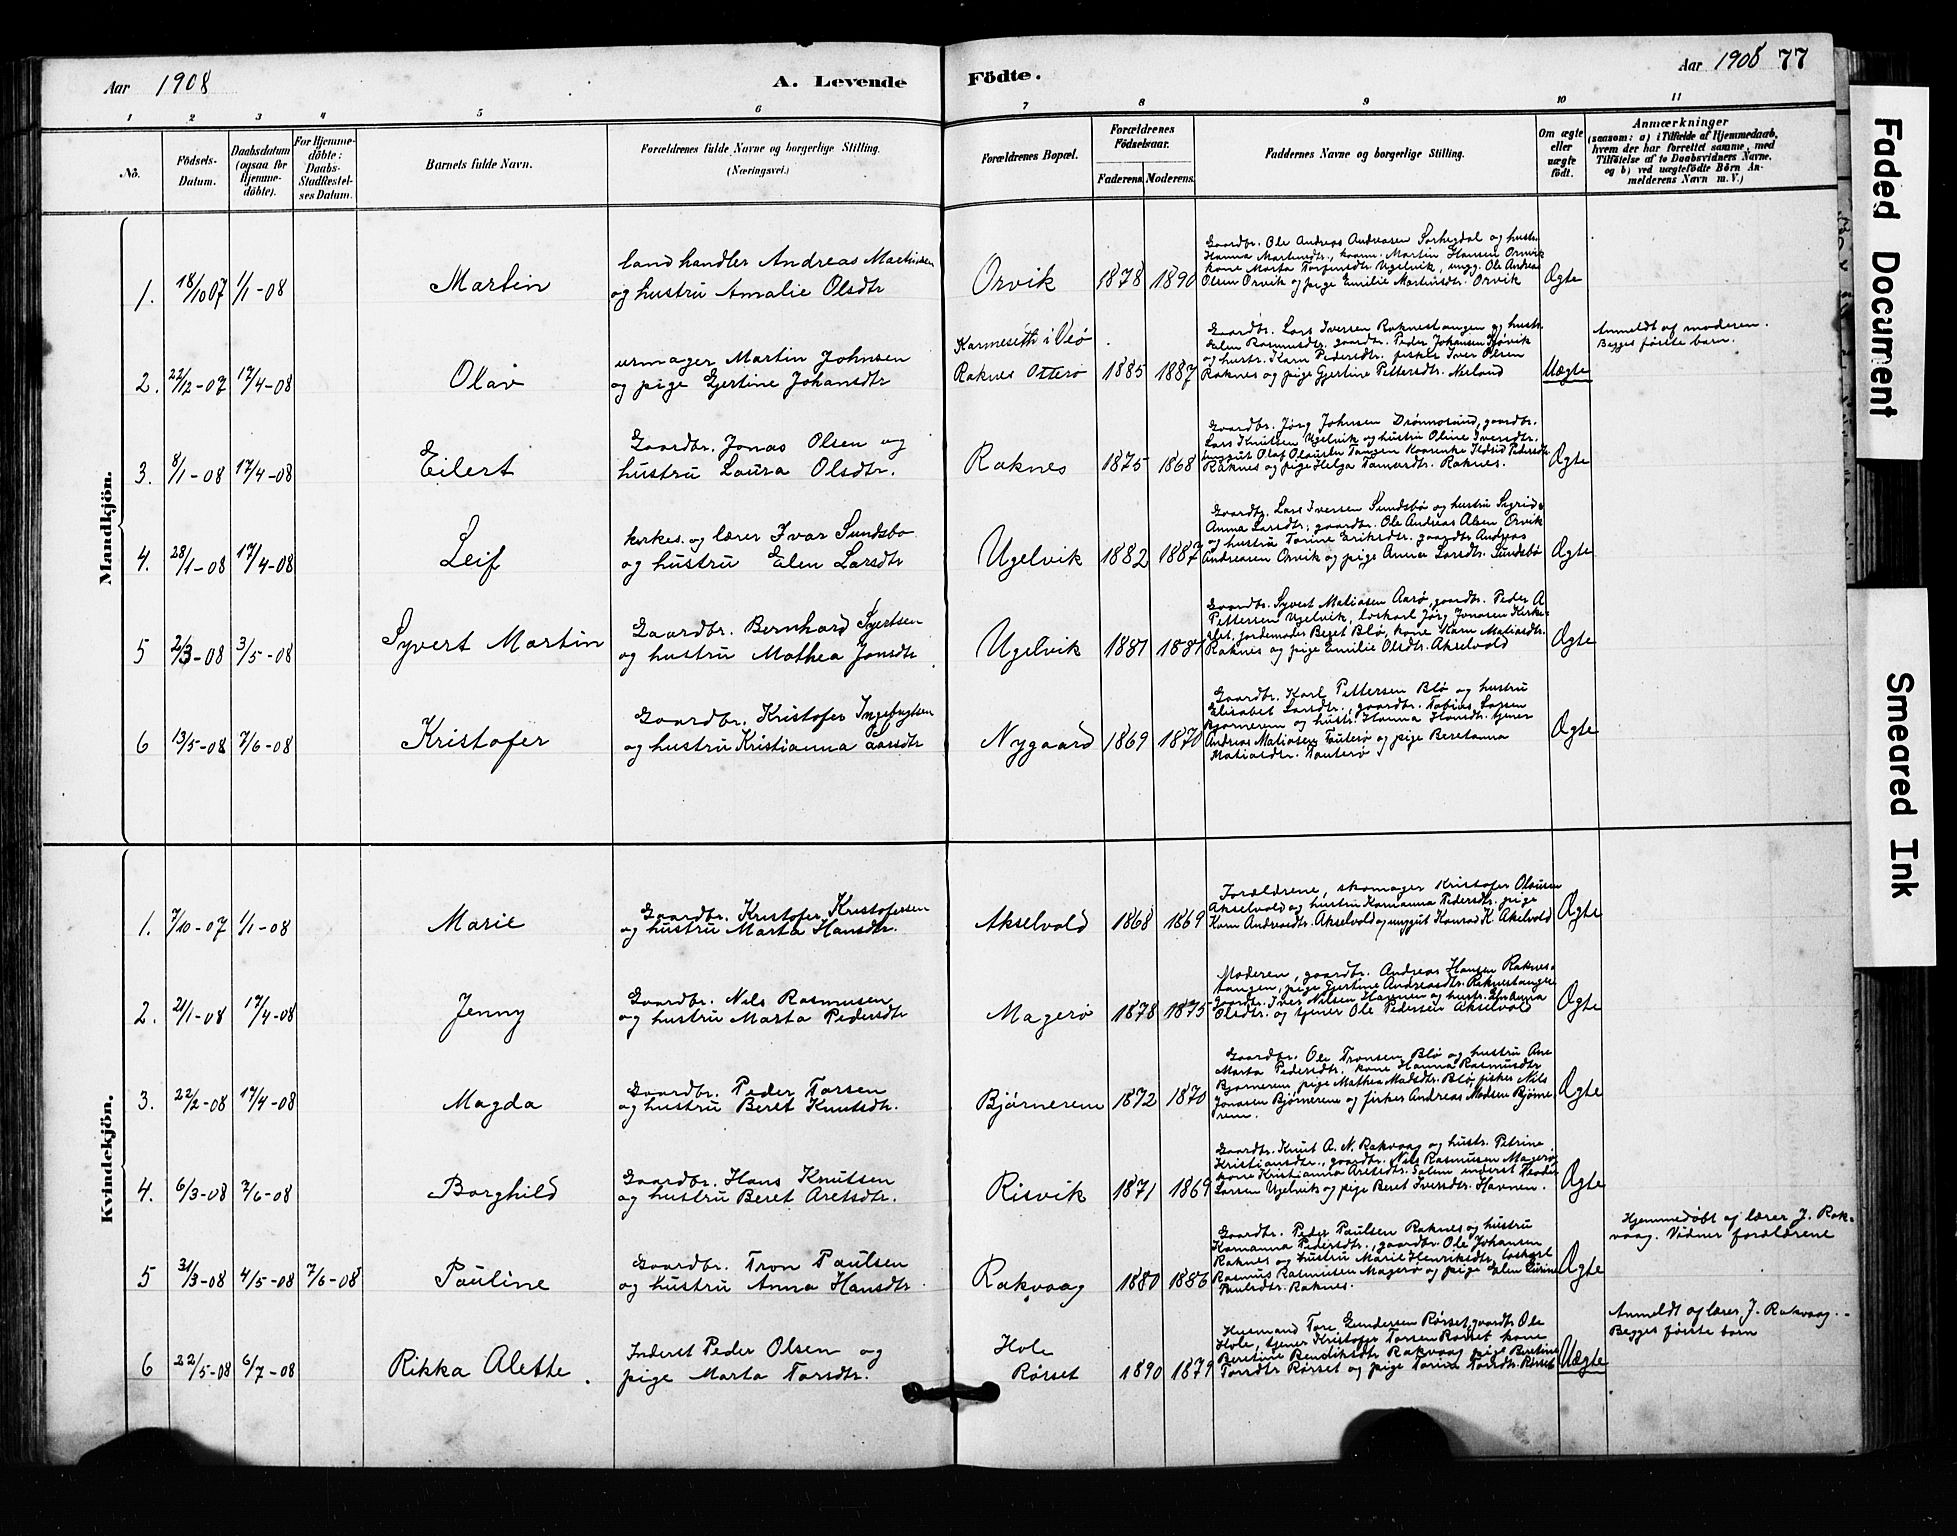 Aar 1908
A. Levende
Födte.
Aar 1908 77
1 2 3 4 5 6 7 8 9 10 11
No.
Födsels-Datum.
Daabsdatum (ogsaa for Hjemme-döbte).
For Hjemme-döbte: Daabs-Stadfæstel-ses Datum.
Barnets fulde Navn.
Forældrenes fulde Navne og borgerlige Stilling.
(Næringsvei.)
Forældrenes Bopæl.
Forældrenes Födselsaar.
Faderens. Moderens.
Faddernes Navne og borgerlige Stilling.
Om ægte eller uægte födt.
Anmærkninger
(saasom: a) i Tilfælde af Hjemmedaab,
hvem der har forrettet samme, med
Tilföielse af to Daabsvidners Navne.
og b) ved uægtefödte Börn An-
melderens Navn m. V.)
Mandkjön.
1. 18/10 07 1/1-08 Martin
landhandler Andreas Martinsen
og hustru Amalie Olsdtr
Orvik 1878 1890
Gaardbr. Ole Andreas Andreasen Sorhegdal og hustr.
Hanna Martinsdtr., kaarm. Martin Hansen Orvik
kone Marta Torfinsdtr Ugelvik, ungg. Ole Andreas
Olsen Orvik og pige Emilie Martinsdtr. Orvik
Ægte
2. 22/12-07 17/4-08 Olav
urmager Martin Johnsen
og pige Gjertine Johansdtr
Karmeseth i Veö
Raknes Otterö 1885 1887
Gaardbr. Lars Iversen Raknestangen og hustr.
Elen Rasmusdtr. gaardbr. Peder Johansen
og hustr. Karn Pedersdtr. fisker Iver Olsen
Raknes og pige Gjertine Pettersdtr. Nerland
Uægte
Anmeldt af moderen.
Begges første barn.
3. 8/1-08 17/4-08 Eilert
Gaardbr. Jonas Olsen og
hustru Laura Olsdtr.
Raknes 1875 1868
Gaardbr. Jørg Johnsen Drønnesund, gaardbr.
Lars Knutsen Ugelvik og hustru Oline Iversdtr.
Raknes og pige Helga Raknes.
Ægte
4. 28/1-08 17/4-08 Leif
kirkes. og lærer Ivar Sundsbo
og hustru Elen Larsdtr
Ugelvik 1882 1887
Gaardbr. Lars Iversen Sundsbø og hustru Sigrid
Anna Larsdtr., gaardbr. Ole Andreas Olsen Orvik
og hustru Torine Eriksdtr. gaardbr Andreas
Andreasen Orvik og pige Anna Larsdtr. Sundsbø
Ægte
5 2/3-08 3/5-08 Syvert Martin
Gaardbr. Bernhard Syvertsen
og hustru Mathea Jonsdtr.
Ugelvik 1881 1881
Gaardbr. Syvert Matiasen Aarø, gaardbr. Peder A
Pettersen Ugelvik, løskarl Jørg Jonasen Kirke-
slet, jordemoder Beret Blø, kone Karn Matiasdtr.
Raknes og pige Emilie Olsdtr. Akselvold
Ægte
6 13/5-08 7/6-08 Kristofer
Gaardbr. Kristofer Ingebrigtsen
og hustru Kristianna Larsdtr
Nygaard 1869 1870
Gaardbr. Karl Pettersen Blø og hustru
Elisabet Larsdtr., gaardbr. Tobias Larsen
Bjørnerem og hustr. Hanna Hansdtr. tjener
Andreas Matiasen Tauterø og pige Beretanna
Matiasdtr. Tauterø
Ægte
Kvindekjön.
1. 7/10-07 1/1-08 Marie
Gaardbr. Kristofer Kristofersen
og hustru Marta Hansdtr.
Akselvold 1868 1869
Forældrene, skomager Kristofer Olausen
Akselvold og hustru Karnanna Pedersdtr. pige
Karn Andreasdtr. Akselvold og unggut Konrad K. Akselvold
Ægte
2. 21/1-08 17/4-08 Jenny
Gaardbr. Nils Rasmusen
og hustru Marta Pedersdtr
Magerø 1878 1875
Moderen, gaardbr. Andreas Hansen Raknes-
tangen, pige Gjertine Andreasdtr. Raknestangen
Gaardbr. Iver Nilsen Havnen og hustr.
Olsdtr. og tjener Ole Pedersen Akselvold
Ægte
3. 22/2-08 17/4-08 Magda
Gaardbr. Peder Torsen
og hustru Beret Knutsdtr.
Bjørnerem 1872 1870
Gaardbr. Ole Tronsen Blø og hustru Ane
Marta Pedersdtr. kone Hanna Rasmusdtr
Bjørnerem pige Mathea Madsdtr. Blø, fisker Nils
Jonasen Bjørnerem og fisker Andreas Madsen Bjørne-
rem.
Ægte
4. 6/3-08 7/6-08 Borghild
Gaardbr. Hans Knutsen
og hustru Beret Aretsdtr.
Risvik 1871 1869
Gaardbr. Knut A. N. Rakvaag og hustr. Petrine
Kristiansdtr., gaardbr. Nils Rasmusen Magerø
kone Kristianna Aretsdtr. Salem inderst Peder
Larsen Ugelvik og pige Beret Iversdtr. Havnen.
Ægte
5 31/3-08 4/5-08 7/6-08 Pauline
Gaardbr. Tron Paulsen
og hustru Anna Hansdtr
Rakvaag 1880 1886
Gaardbr. Peder Paulsen Raknes og hustru
Karnanna Pedersdtr., gaardbr. Ole Johansen
Raknes og hustru Marie Henriksdtr, løskarl
Rasmus Rasmusen Magerø og pige Elen Lurine
Paulsdtr. Raknes.
Ægte
Hjemmedøbt af lærer J. Rak-
vaag. Vidner forældrene
6 22/5-08 6/7-08 Rikka Alette.
Inderst Peder Olsen og
pige Marta Torsdtr.
Hole
Rørset 1890 1879
Husmand Tore Gundersen Rørset, gaardbr Ole
Hole, tjener Kristofer Torsen Rørset kone
Beretine Bendiksdtr Rakvaag pige Beretine
Torsdtr Rørset og pige Torine Torsdtr. Rørset
Uægte
Anmeldt af lærer J. Rakvaag.
Begges første barn
Faded Document
Smeared Ink